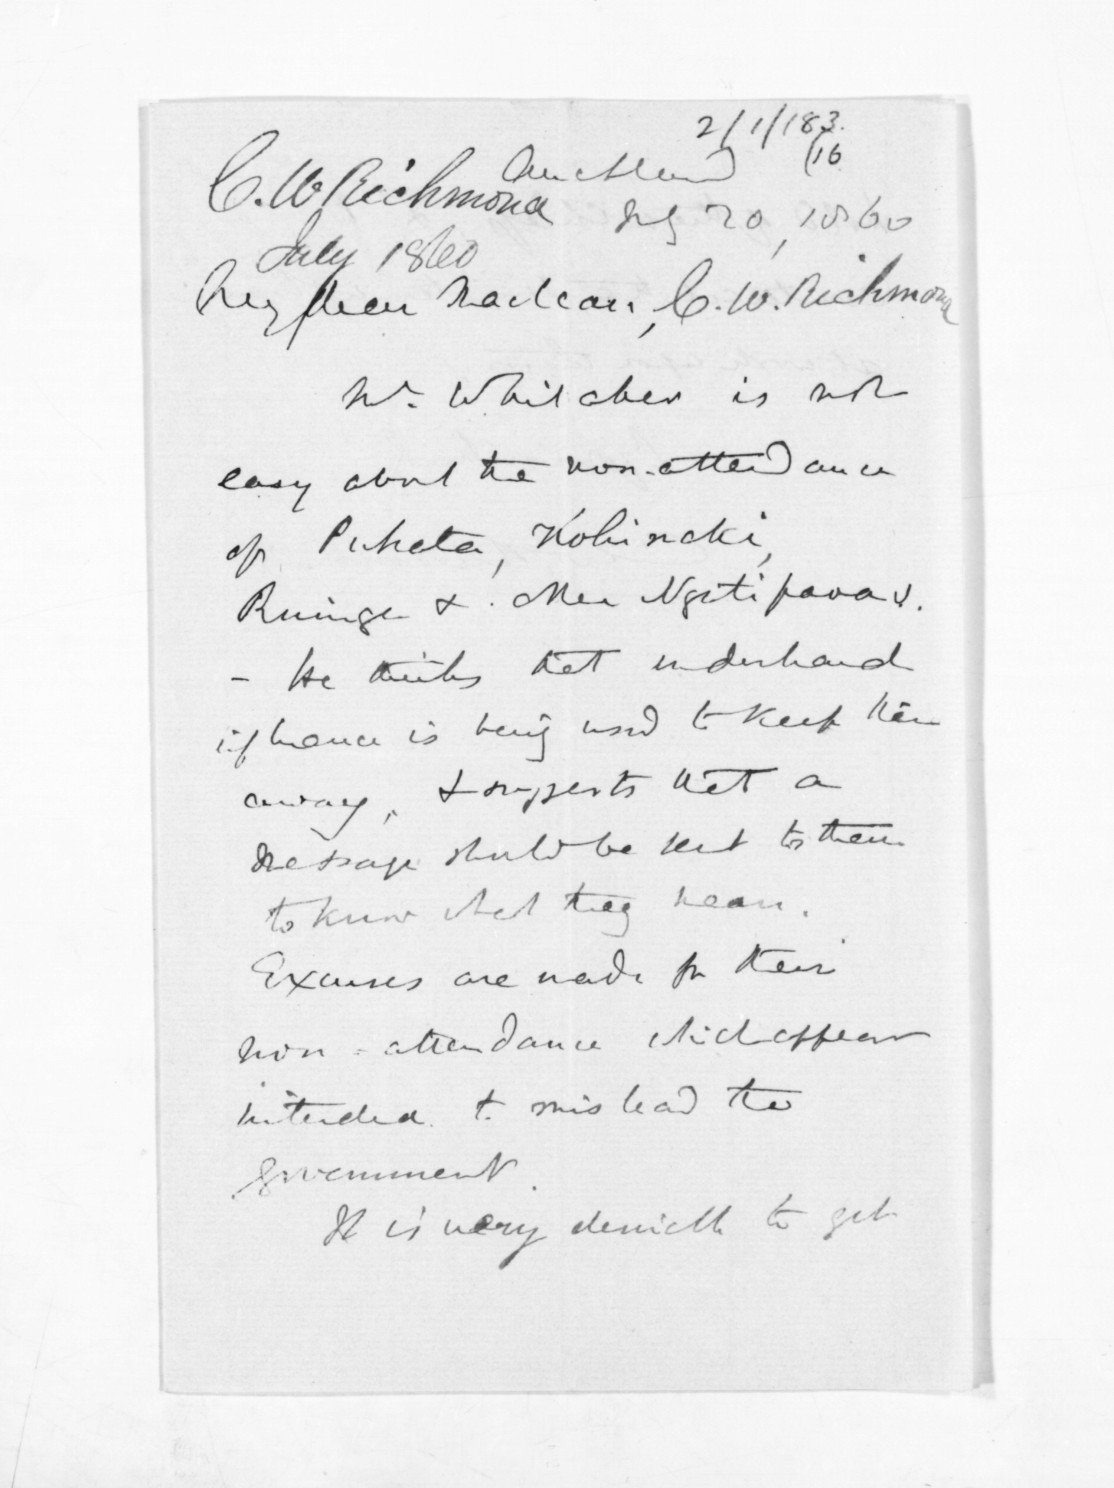 2/1/183.
(16
Auckland
C. W Richmond
July 20, 1860
July 1860
My dear Maclean, C. W. Richmond
Mr. Whitaker is not
easy about the non-attendance
of Puhata, Kohinoki,
Ruinga & other Ngatipaoas.
- He thinks that underhand
influence is being used to keep them
away, & suggests that a
message should be sent to them
to know what they mean.
Excuses are made for their
non-attendance which appear
intended to mislead the
Government.
It is very desirable to get